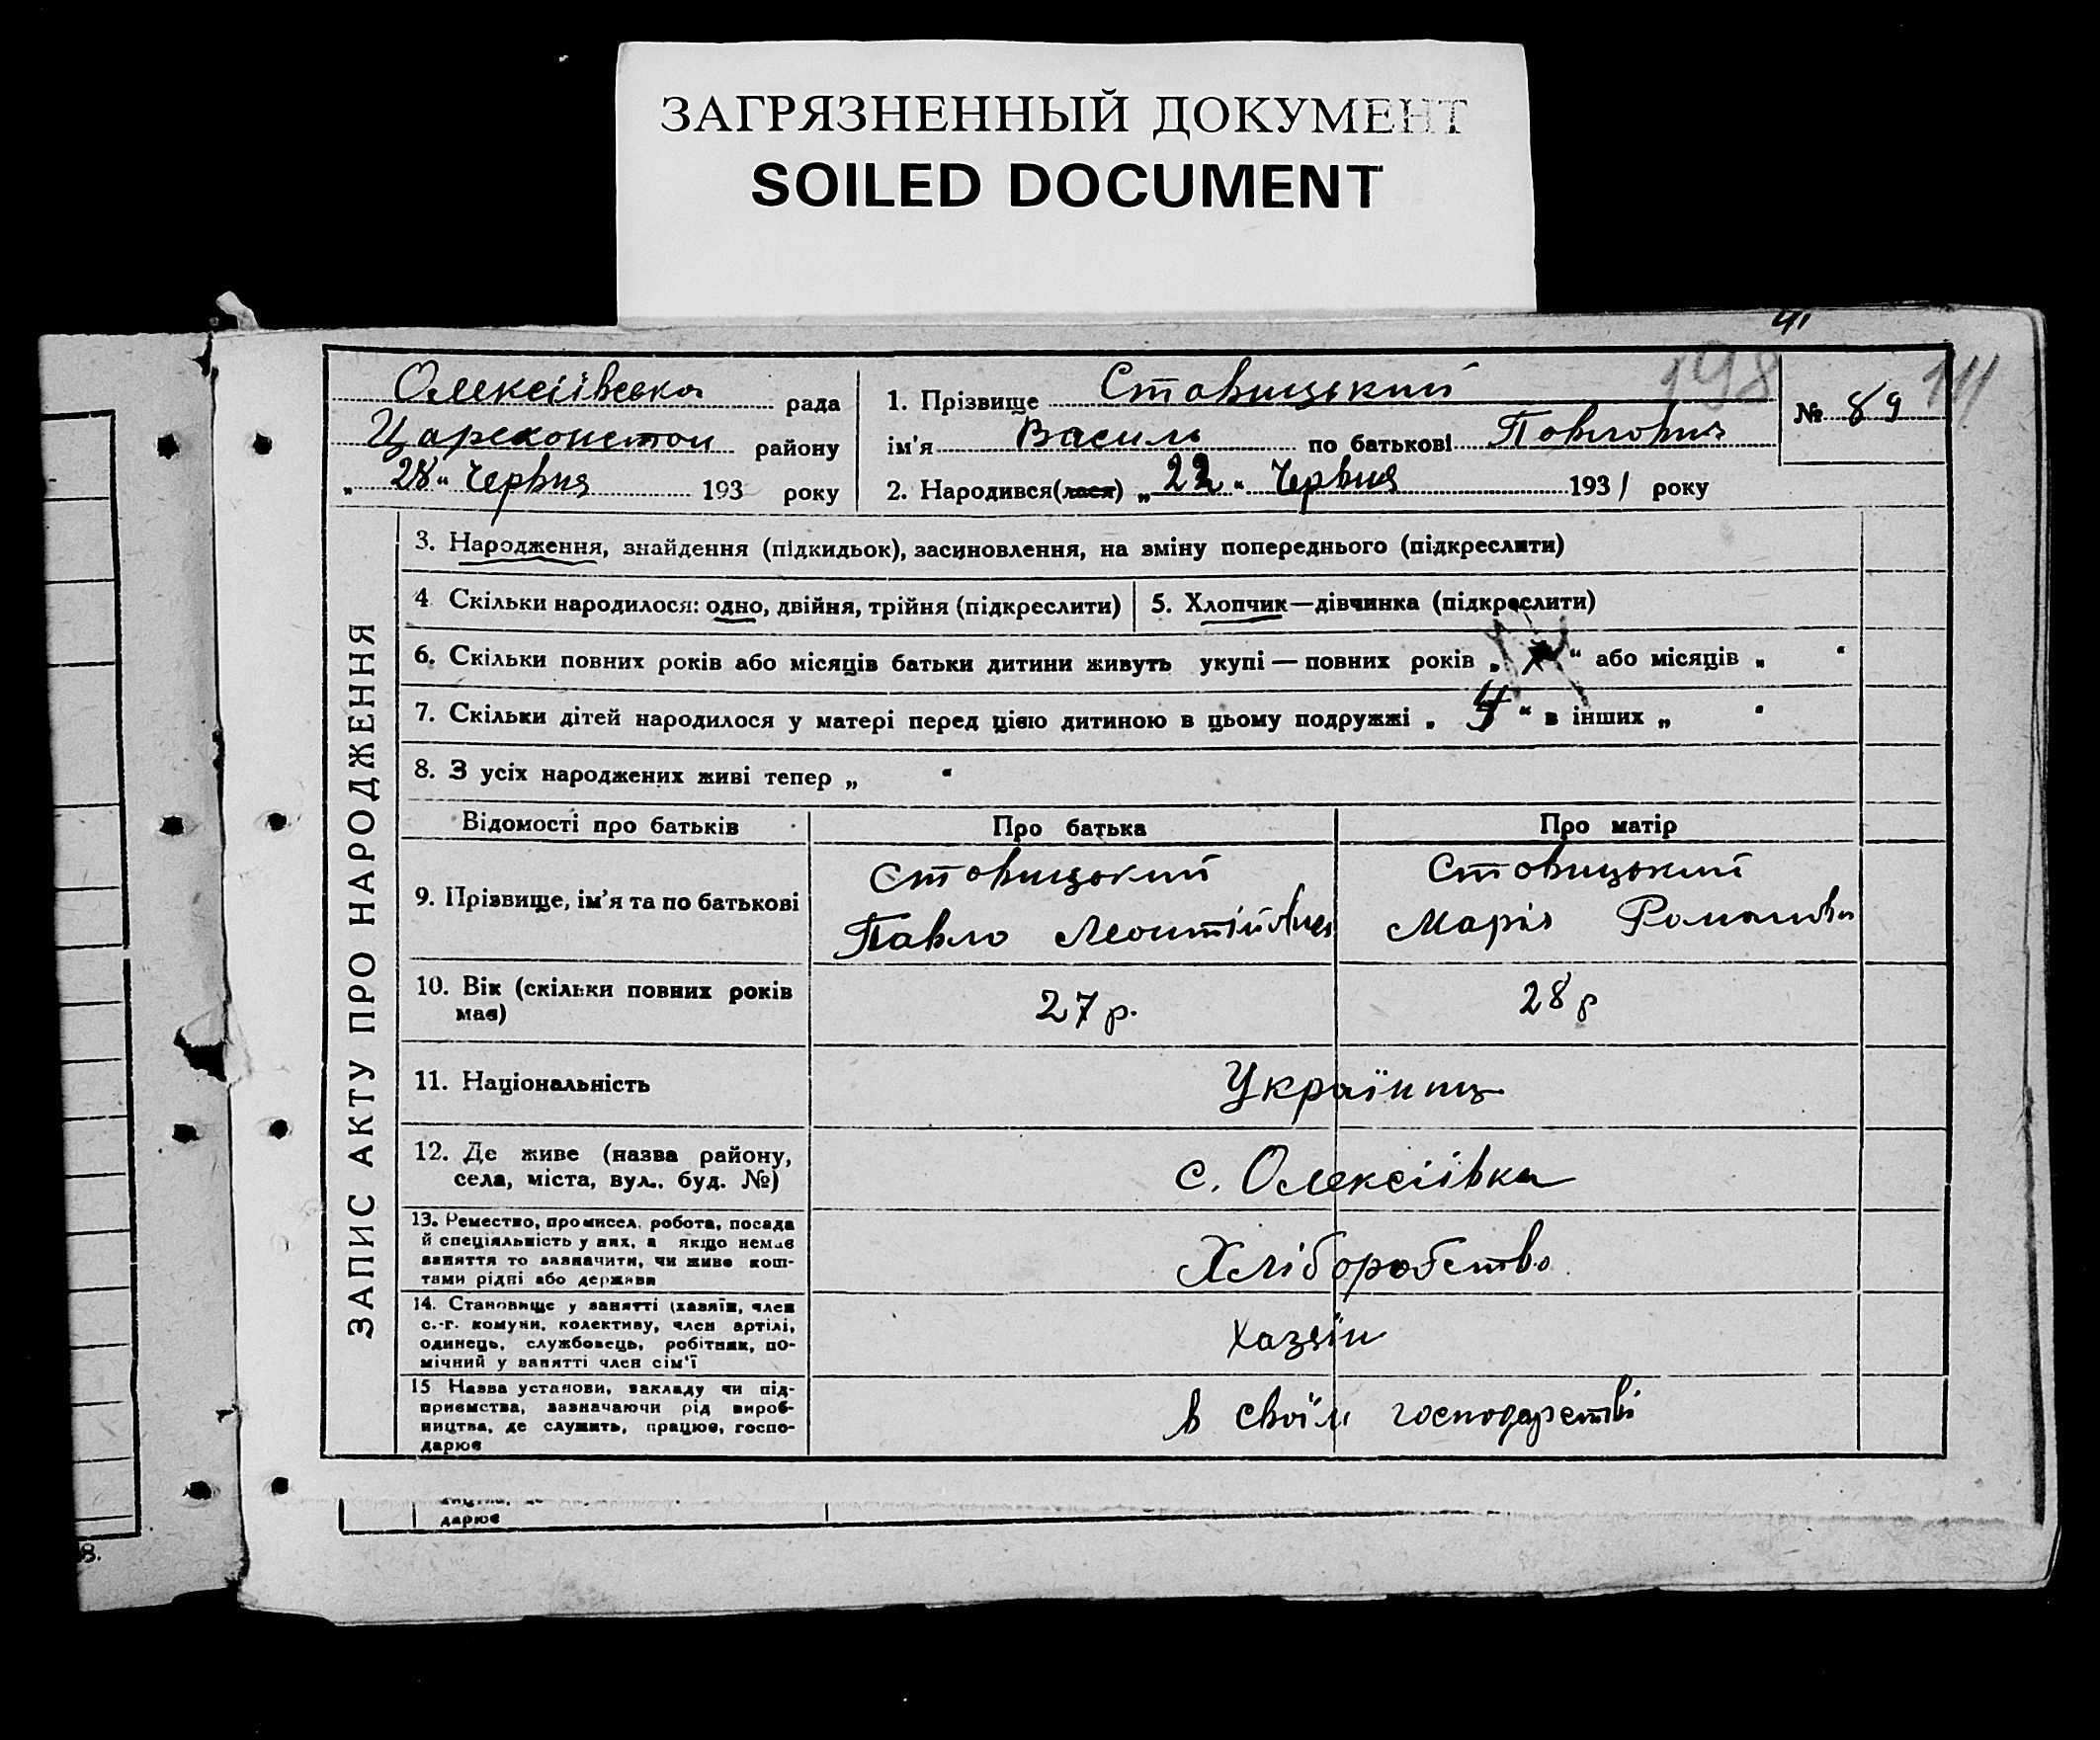 ЗАГРЯЗНЕННЫЙ ДОКУМЕНТ
SOILED DOCUMENT
41
198
111
Олексіївська рада
Царекопстон району
„ 28 “ Червня 193 року
1. Прізвище Ставицький
ім'я Василь по батькові Павлович
2. Народився(лася) „ 22 “ Червня 1931 року
№ 89
ЗАПИС АКТУ ПРО НАРОДЖЕННЯ
3. Народження, знайдення (підкидьок), засиновлення, на зміну попереднього (підкреслити)
4 Скільки народилося: одно, двійня, трійня (підкреслити) 5. Хлопчик—дівчинка (підкреслити)
6. Скільки повних років або місяців батьки дитини живуть укупі — повних років „ “ або місяців „ “
7. Скільки дітей народилося у матері перед цією дитиною в цьому подружжі „ “ в інших „ “
8. З усіх народжених живі тепер „ “
Відомості про батьків Про батька Про матір
9. Прізвище, ім'я та по батькові
Ставицький
Павло Леонтійович
Ставицький
Марія Романовн
10. Вік (скільки повних років має)
27 р.
28 р
11. Національність
Українц
12. Де живе (назва району,
села, міста, вул., буд. №)
с. Олексіївка
13. Ремество, промисел, робота, посада
й спеціяльність у них, а якщо немає
заняття то зазначити, чи живе кош-
тами рідні або держави
Хліборобство
14. Становище у занятті (хазяїн, член
с.-г. комуни, колективу, член артілі,
одинець, службовець, робітник, по-
мічний у занятті член сім'ї
хазяїн
15 Назва установи, закладу чи під-
приємства, зазначаючи рід вироб-
ництва, де служить, працює, госпо-
дарює
в своїм господарстві
дарює
8.